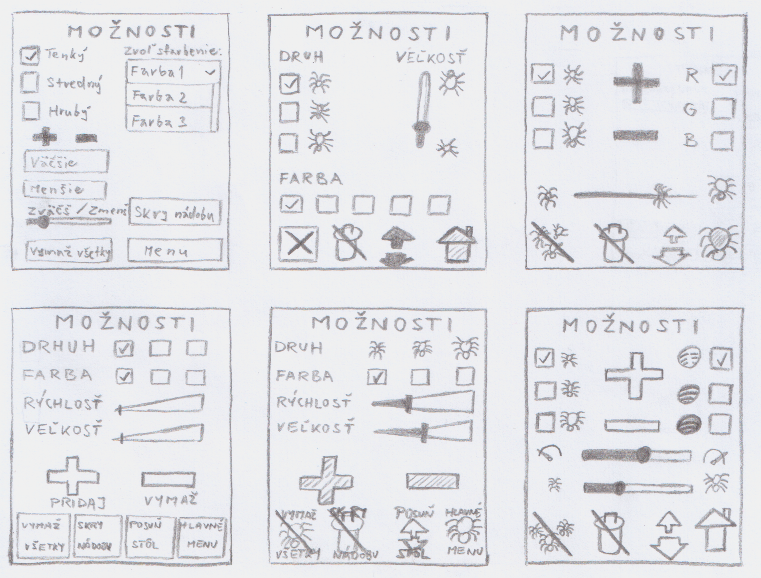 MOŽNOSTI
Tenký
Zvoľ sfarbenie:
Stredný
Farba 1
Farba 2
Hrubý
Farba 3
Väčšie
Menšie
Zväčš / Zmenš
Skry nádobu
Vymaž všetky
Menu
MOŽNOSTI
DRUH
VEĽKOSŤ
FARBA
MOŽNOSTI
R
G
B
MOŽNOSTI
DRHUH
FARBA
RÝCHLOSŤ
VEĽKOSŤ
PRIDAJ
VYMAŽ
VYMAŽ
VŠETKY
SKRY
NÁDOBU
POSUŇ
STÔL
HLAVNÉ
MENU
MOŽNOSTI
DRUH
FARBA
RÝCHLOSŤ
VEĽKOSŤ
VYMAŽ
VŠETKY
SKRY
NÁDOBU
POSUŇ
STÔL
HLAVNÉ
MENU
MOŽNOSTI